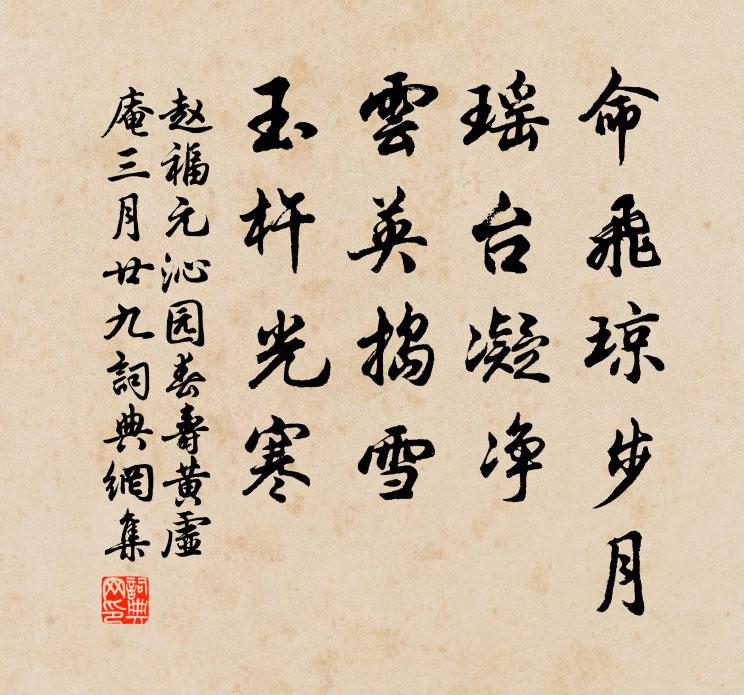 命飛琼步月
瑶台凝净
雲英搗雪
玉杵光寒
赵福元沁园春壽黄虛
庵三月廿九詞典網集
詞典
网印